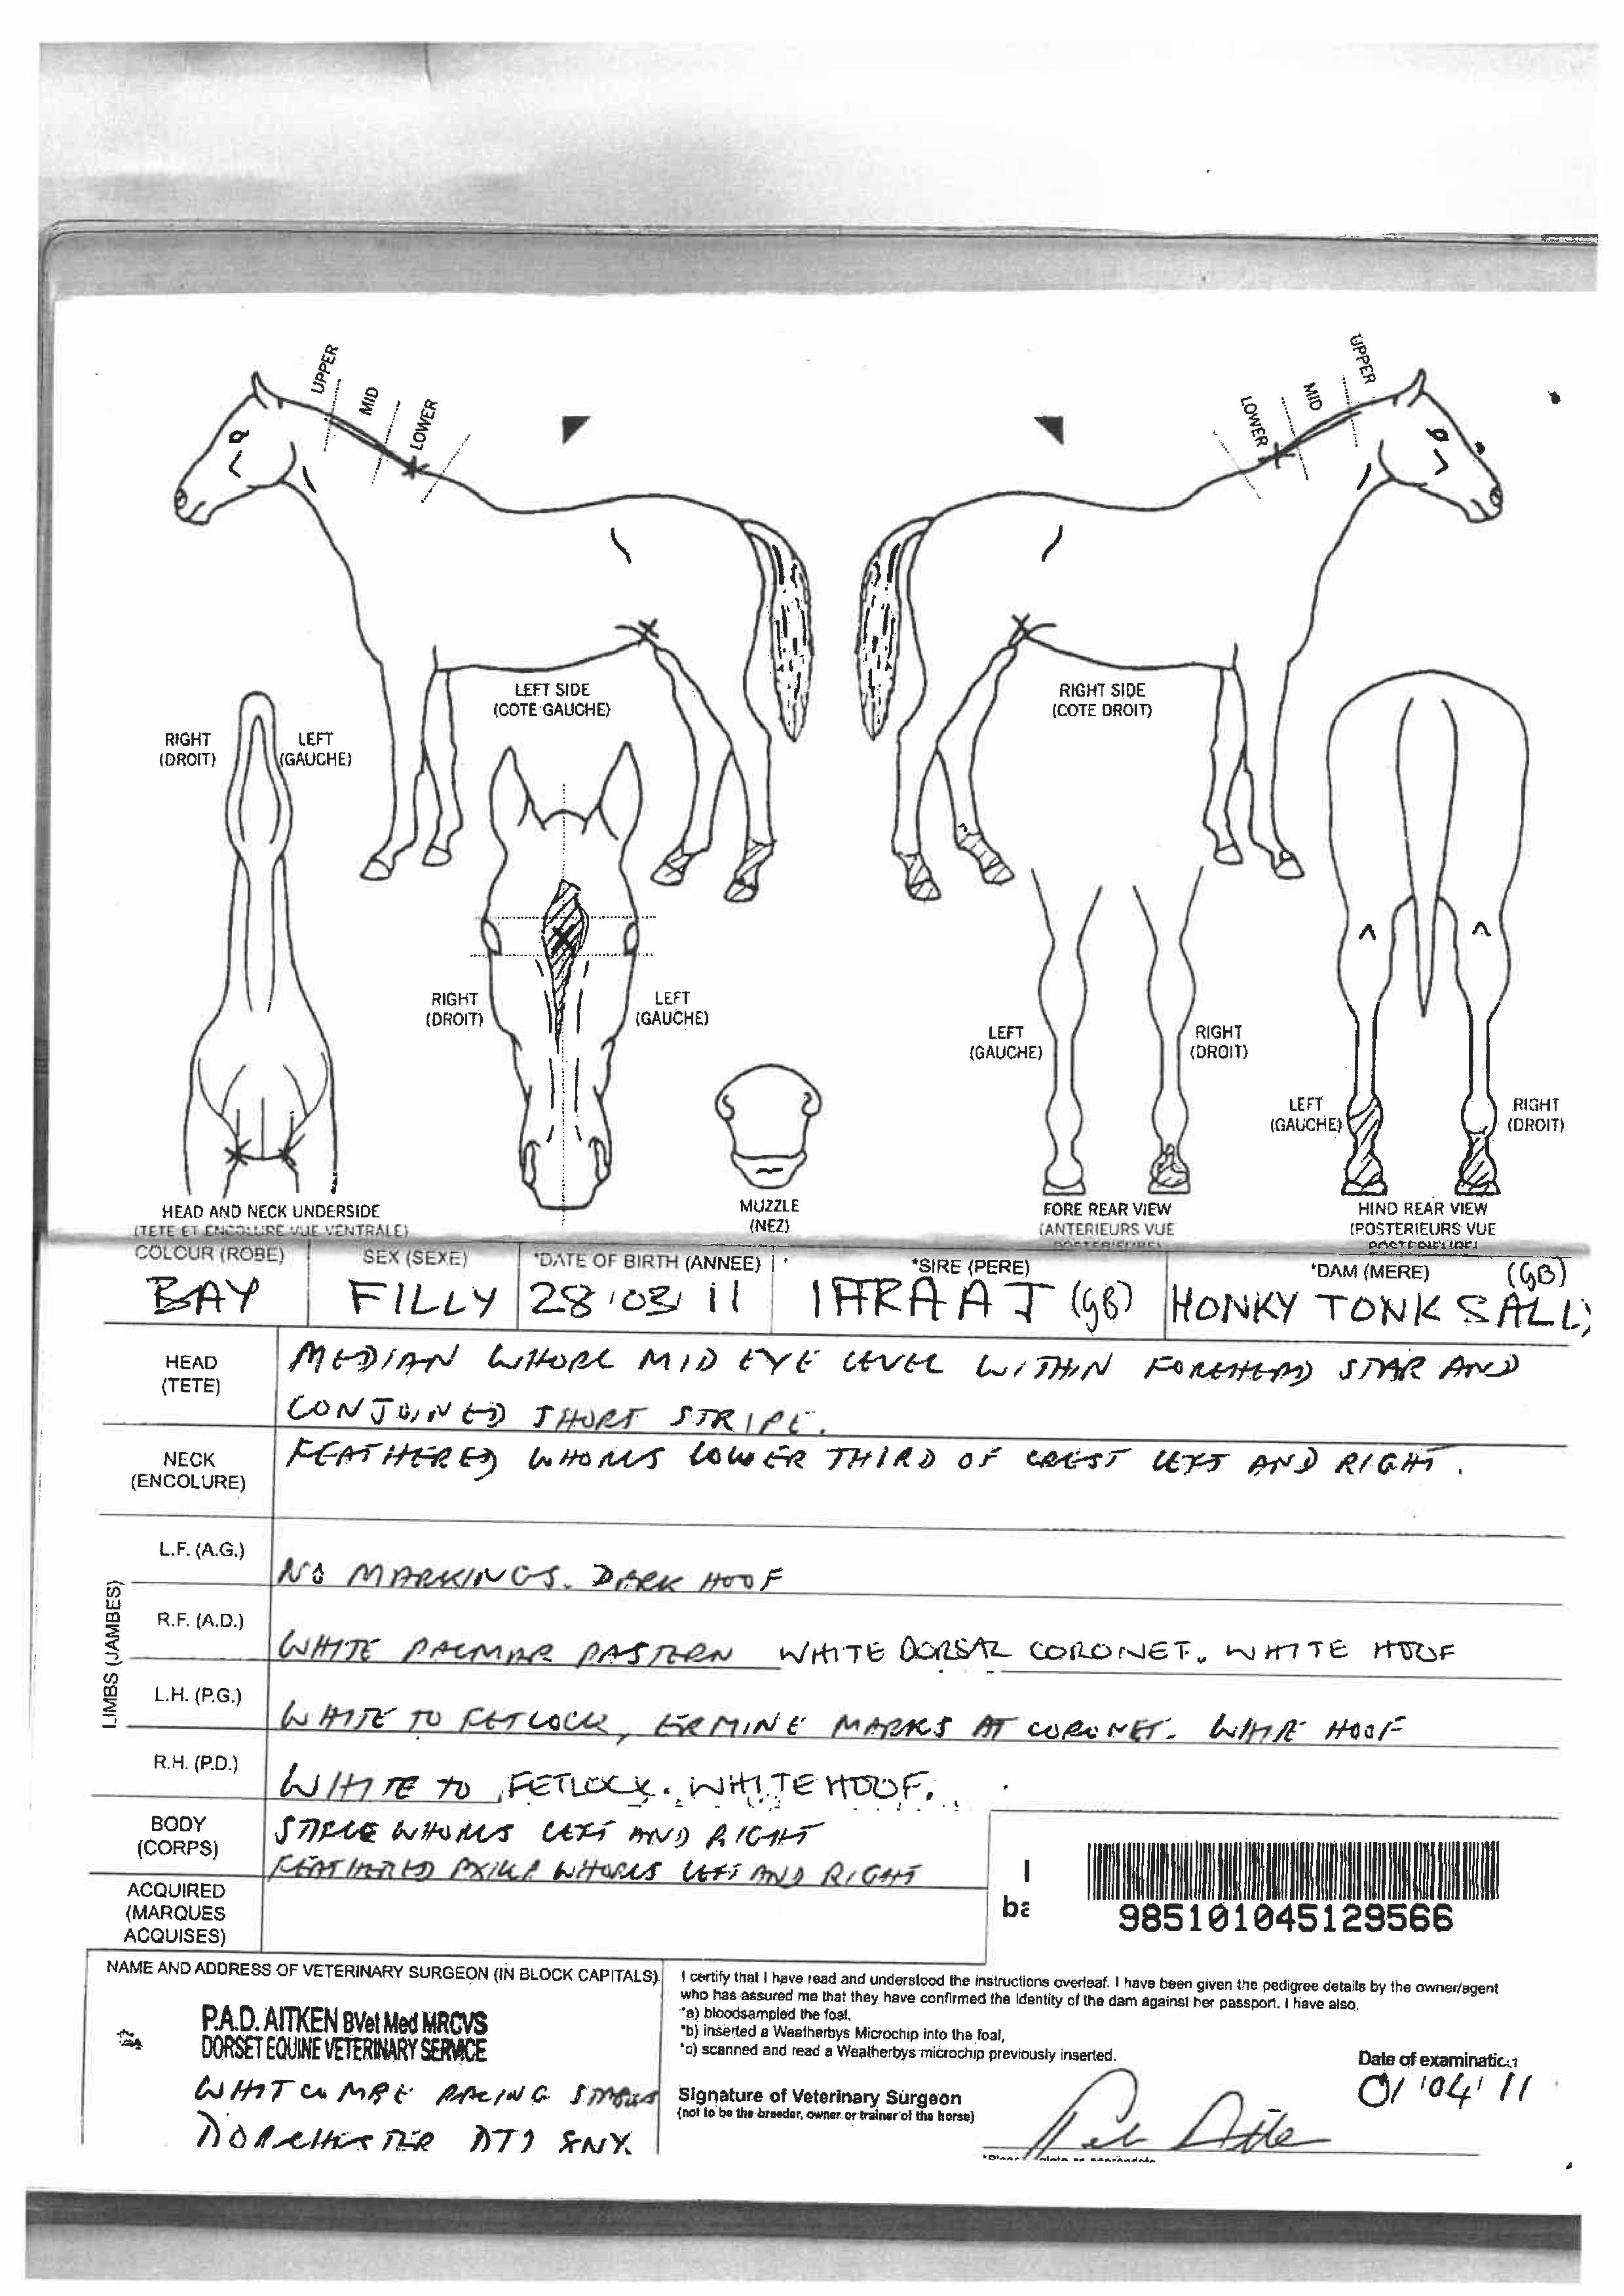 UPPER
MID
LOWER
UPPER
MID
LOWER
LEFT SIDE
(COTE GAUCHE)
RIGHT SIDE
(COTE DROIT)
RIGHT
(DROIT)
LEFT
(GAUCHE)
RIGHT
(DROIT)
LEFT
(GAUCHE)
LEFT
(GAUCHE)
RIGHT
(DROIT)
LEFT
(GAUCHE)
RIGHT
(DROIT)
HEAD AND NECK UNDERSIDE
(TETE ET ENCOLURE VUE VENTRALE)
MUZZLE
(NEZ)
FORE REAR VIEW
(ANTERIEURS VUE
HIND REAR VIEW
(POSTERIEURS VUE
COLOUR (ROBE)
BAY
SEX (SEXE)
FILLY
*DATE OF BIRTH (ANNEE)
28 03 11
*SIRE (PERE)
IFFRAAJ (GB)
*DAM (MERE)
(GB)
HONKY TONK SALLY
HEAD
(TETE)
MEDIAN WHORL MID EYE LEVEL WITHIN FOREHEAD STAR AND
CONJOINED SHORT STRIPE.
NECK
(ENCOLURE)
FEATHERED WHORLS LOWER THIRD OF CREST LEFT AND RIGHT.
LIMBS (JAMBES)
L.F. (A.G.)
NO MARKINGS. DARK HOOF
R.F. (A.D.)
WHITE PALMAR PASTERN WHITE DORSAL CORONET. WHITE HOOF
L.H. (P.G.)
WHITE TO FETLOCK, ERMINE MARKS AT CORONET. WHITE HOOF
R.H. (P.D.)
WHITE TO FETLOCK. WHITE HOOF.
BODY
(CORPS)
STIFLE WHORLS LEFT AND RIGHT
FEATHERED AXILLA WHORLS LEFT AND RIGHT
ACQUIRED
(MARQUES
ACQUISES)
985101045129566
NAME AND ADDRESS OF VETERINARY SURGEON (IN BLOCK CAPITALS)
P.A.D. AITKEN BVet Med MRCVS
DORSET EQUINE VETERINARY SERVICE
WHITCOMBE RACING STABLES
DORCHESTER DT2 8NY.
I certify that I have read and understood the instructions overleaf. I have been given the pedigree details by the owner/agent
who has assured me that they have confirmed the identity of the dam against her passport. I have also,
*a) bloodsampled the foal,
*b) inserted a Weatherbys Microchip into the foal,
*c) scanned and read a Weatherbys microchip previously inserted.
Signature of Veterinary Surgeon
(not to be the breeder, owner or trainer of the horse)
Date of examination
01 04 11